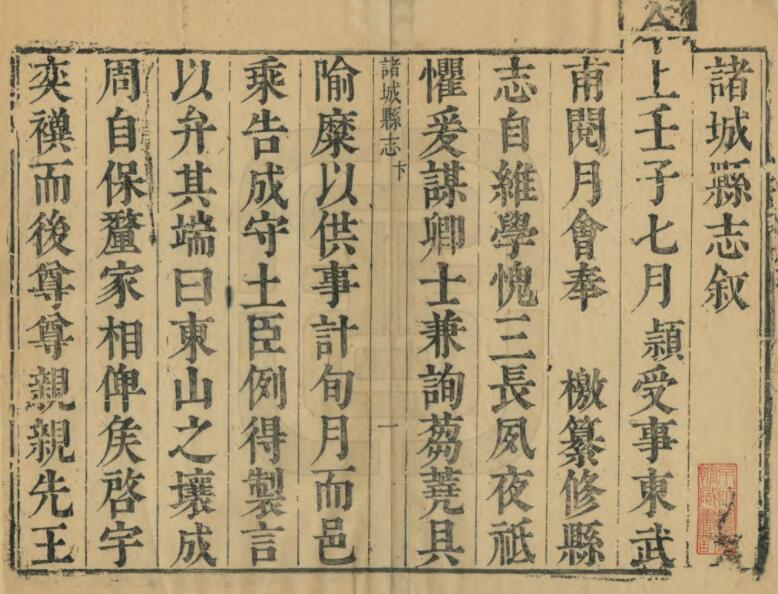 諸城縣志叙
上壬子七月穎受事東武
甫閱月會奉　檄纂修縣
志自維學愧三長夙夜祗
懼爰謀卿士兼詢蒭蕘具
諸城縣志　卞　一
隃糜以供事計旬月而邑
乘告成守土臣例得製言
以弁其端曰東山之壤成
周自保釐家相俾矦啓宇
奕禩而後尊尊親親先王